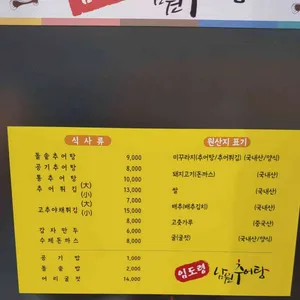 식 사 류
돌솥추어탕 9,000
공기추어탕 8,000
통추어탕 10,000
추어튀김 (大) 13,000
(小) 7,000
고추야채튀김 (大) 15,000
(小) 8,000
감자만두 6,000
수제돈까스 8,000
공기밥 1,000
돌솥밥 2,000
14,000
원산지 표기
미꾸라지(추어탕/추어튀김) (국내산/양식)
돼지고기(돈까스) (국내산)
쌀 (국내산)
배추(배추김치) (국내산)
고춧가루 (중국산)
굴(굴젓) (국내산/양식)
이도령 남원추어탕